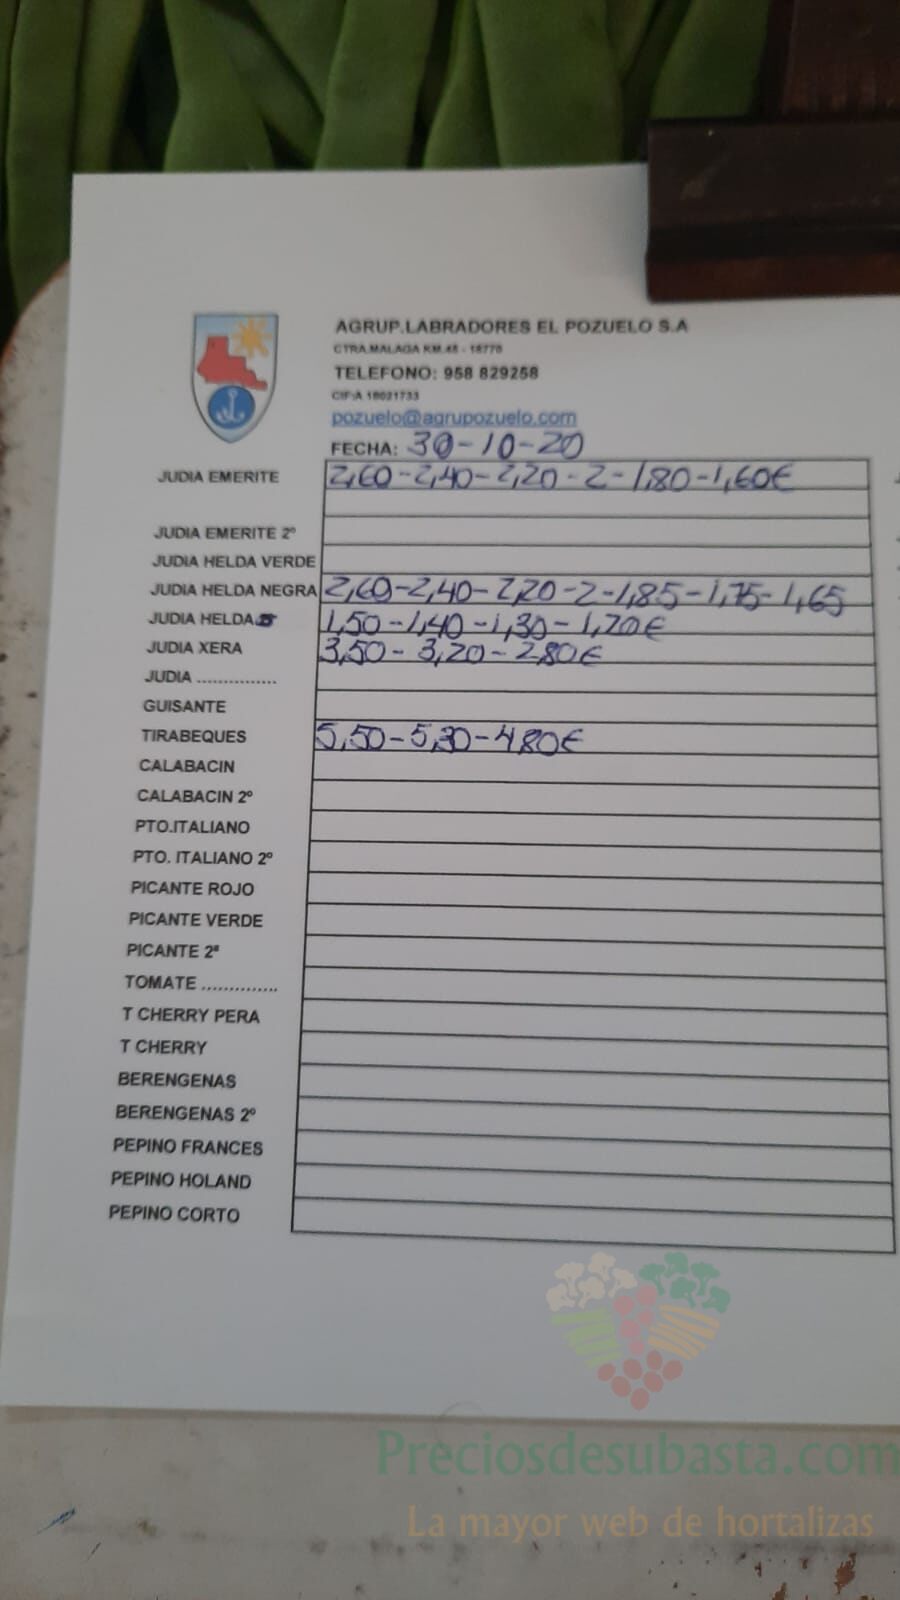 AGRUP.LABRADORES EL POZUELO S.A
CTRA.MALAGA KM.45 - 18770
TELEFONO: 958 829258
CIF:A 18021733
pozuelo@agrupozuelo.com
FECHA: 30-10-20
JUDIA EMERITE 2,60-2,40-2,20-2-1,80-1,60€
JUDIA EMERITE 2º
JUDIA HELDA VERDE
JUDIA HELDA NEGRA 2,60-2,40-2,20-2-1,85-1,75-1,65
JUDIA HELDA 1,50-1,40-1,30-1,20€
JUDIA XERA 3,50-3,20-2,80€
JUDIA ...............
GUISANTE
TIRABEQUES 5,50-5,30-4,80€
CALABACIN
CALABACIN 2º
PTO.ITALIANO
PTO. ITALIANO 2º
PICANTE ROJO
PICANTE VERDE
PICANTE 2ª
TOMATE ..............
T CHERRY PERA
T CHERRY
BERENGENAS
BERENGENAS 2º
PEPINO FRANCES
PEPINO HOLAND
PEPINO CORTO
Preciosdesubasta.com
La mayor web de hortalizas